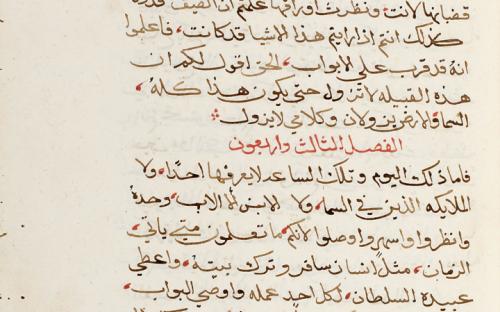 قضبانها لانت، ونظرت اوراقها علمتم ان الصيف قد دنا
كذلك انتم اذا رايتم هذا الاشيا قد كانت، فاعلموا
انه قد قرب على الابواب، الحق اقول لكم ان
هذه القبيله لا تزول حتى يكون هذا كله،
السما والارض يزولان وكلامي لا يزول
الفصل الثالث واربعون
فاما ذلك اليوم وتلك الساعه لا يعرفها احدا، ولا
الملايكه الذين في السما، ولا الابن الا الاب، وحده
وانظروا واسهروا وصلوا لانكم ما تعلمون متى ياتي،
الزمان، مثل انسان سافر وترك بيته، واعطي
عبيده السلطان، لكل احد عمله واوصي البواب،